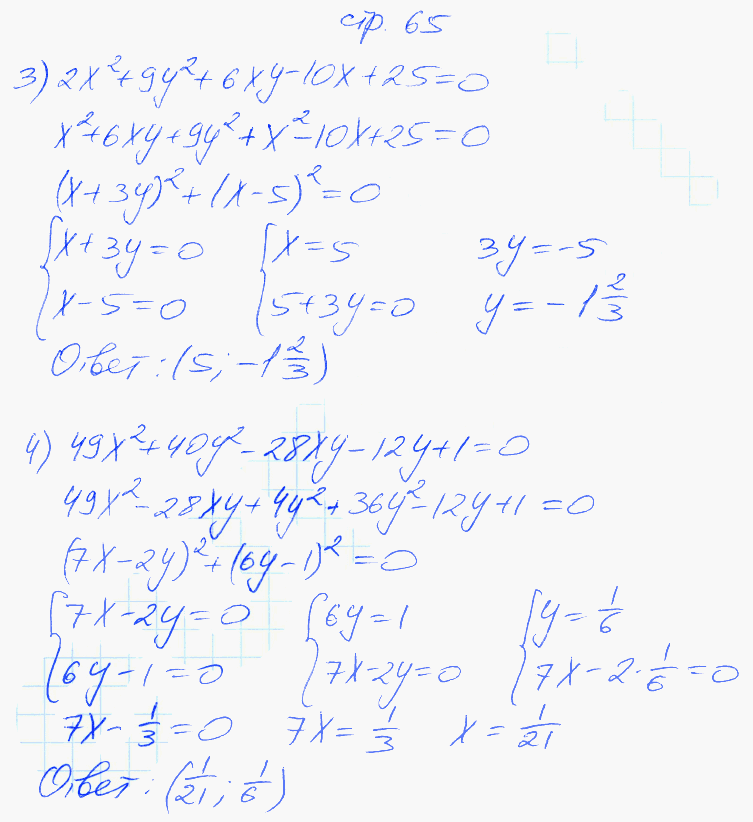 стр. 65
3) 2x²+9y²+6xy-10x+25=0
x²+6xy+9y²+x²-10x+25=0
(x+3y)²+(x-5)²=0
{x+3y=0 {x=5 3y=-5
x-5=0 5+3y=0 y=-1 2/3
Ответ: (5; -1 2/3)
4) 49x²+40y²-28xy-12y+1=0
49x²-28xy+4y²+36y²-12y+1=0
(7x-2y)²+(6y-1)²=0
{7x-2y=0 {6y=1 {y=1/6
6y-1=0 7x-2y=0 7x-2·1/6=0
7x-1/3=0 7x=1/3 x=1/21
Ответ: (1/21; 1/6)